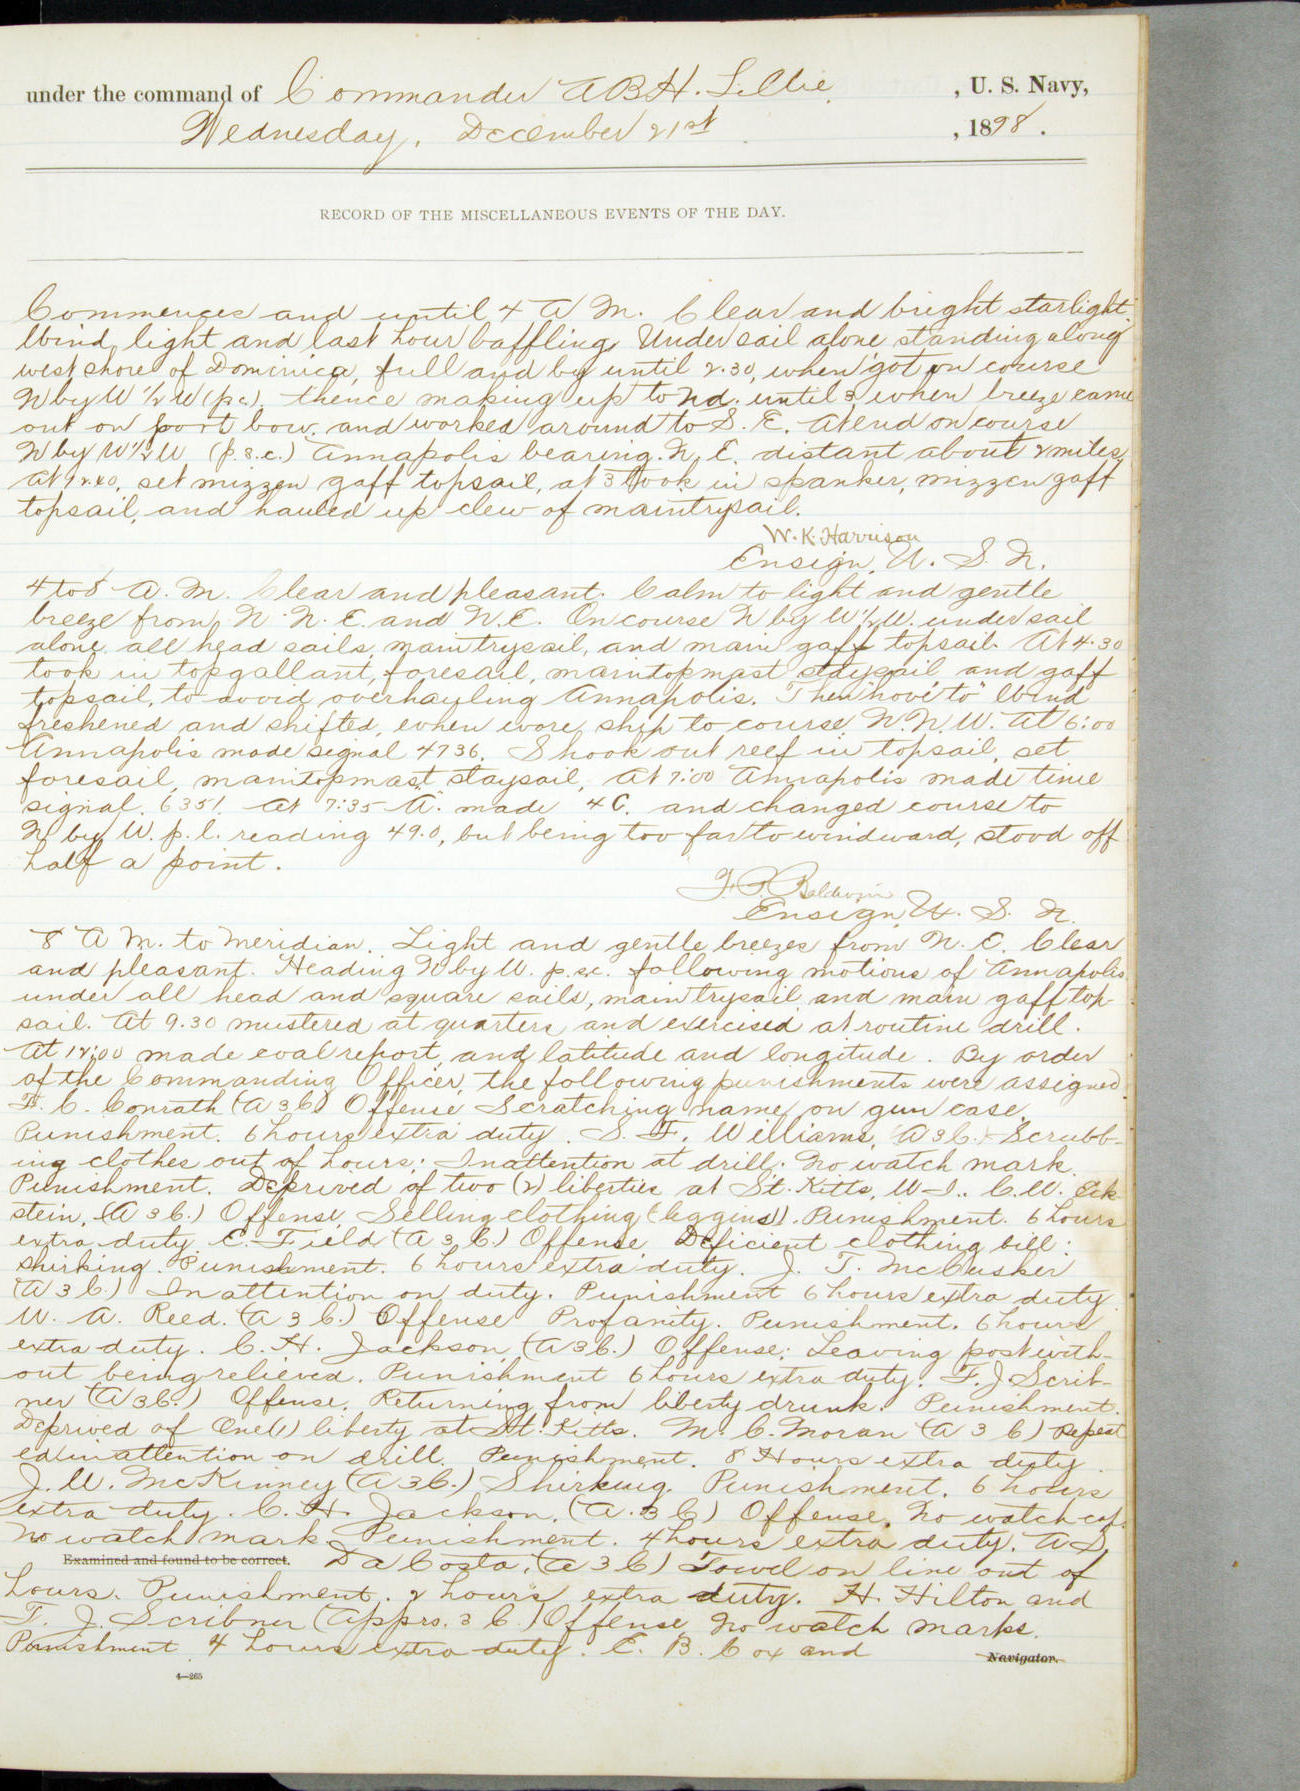 under the command of Commander A B H. Lillie, U. S. Navy,
Wednesday, December 21st, 1898.
RECORD OF THE MISCELLANEOUS EVENTS OF THE DAY.
Commences and until 4 A M. Clear and bright starlight.
Wind light and last hour baffling. Under sail alone standing along
west shore of Dominica, full and by until 2.30, when got on course
N by W 1/2 W (p.c.), thence making up to Nd. until 3 when breeze came
out on port bow, and worked around to S. E. At end on course
N by W 1/2 W (p.s.c.) Annapolis bearing N. E. distant about 2 miles.
At 12.40, set mizzen gaff topsail, at 3 took in spanker, mizzen gaff
topsail, and hauled up clew of maintrysail.
W. K. Harrison
Ensign, U. S. N.
4 to 8 A. M. Clear and pleasant. Calm to light and gentle
breeze from N. N. E. and N. E. On course N by W 1/2 W. under sail
alone, all head sails, maintrysail, and main gaff topsail. At 4.30
took in topgallant, foresail, maintopmast staysail, and gaff
topsail, to avoid overhauling Annapolis. Then "hove to" Wind
freshened and shifted, when wore ship to course N. N. W. At 6:00
Annapolis made signal 4736. Shook out reef in topsail, set
foresail, maintopmast staysail, At 7:00 Annapolis made time
signal. 6351. At 7:35 A. made 4C. and changed course to
N by W. p. c. reading 49.0, but being too far to windward, stood off
half a point.
F. P. Baldwin
Ensign U. S. N.
8 A M. to Meridian. Light and gentle breezes from N. E. Clear
and pleasant. Heading N by W. p.s.c. following motions of Annapolis
under all head and square sails, main trysail and main gaff top-
sail. At 9.30 mustered at quarters and exercised at routine drill.
At 12:00 made coal report, and latitude and longitude. By order
of the Commanding Officer, the following punishments were assigned.
F. C. Conrath (A 3 C) Offense Scratching name on gun case.
Punishment. 6 hours extra duty. S. F. Williams, (A 3 C.) Scrubb-
ing clothes out of hours; Inattention at drill. No watch mark.
Punishment. Deprived of two (2) liberties at St. Kitts, W-I.. C. W. Eck-
stein, (A 3 C.) Offense Selling clothing (leggins). Punishment. 6 hours
extra duty. E. Field (A 3 C.) Offense. Deficient clothing bill:
shirking. Punishment. 6 hours extra duty. J. T. McCusker
(A 3 C.) Inattention on duty. Punishment 6 hours extra duty.
W. A. Reed. (A 3 C.) Offense Profanity. Punishment. 6 hours
extra duty. C. H. Jackson, (A 3 C.) Offense; Leaving post with-
out being relieved. Punishment 6 hours extra duty. F. J. Scrib-
ner (A 3 C.) Offense. Returning from liberty drunk. Punishment.
Deprived of One (1) liberty at St. Kitts. M. C. Moran (A 3 C) Repeat-
ed inattention on drill. Punishment. 8 Hours extra duty.
J. W. McKinney (A 3 C.) Shirking. Punishment. 6 hours
extra duty. C. H. Jackson, (A. 3 C) Offense. No watch cap.
No watch mark. Punishment. 4 hours extra duty. A S
Examined and found to be correct. Da Costa, (A 3 C) Towel on line out of
hours. Punishment. 2 hours extra duty. H. Hilton and
F. J. Scribner (Apprs. 3 C.) Offense, No watch marks.
Punishment 4 hours extra duty. E. B. Cox and
Navigator.
4—265